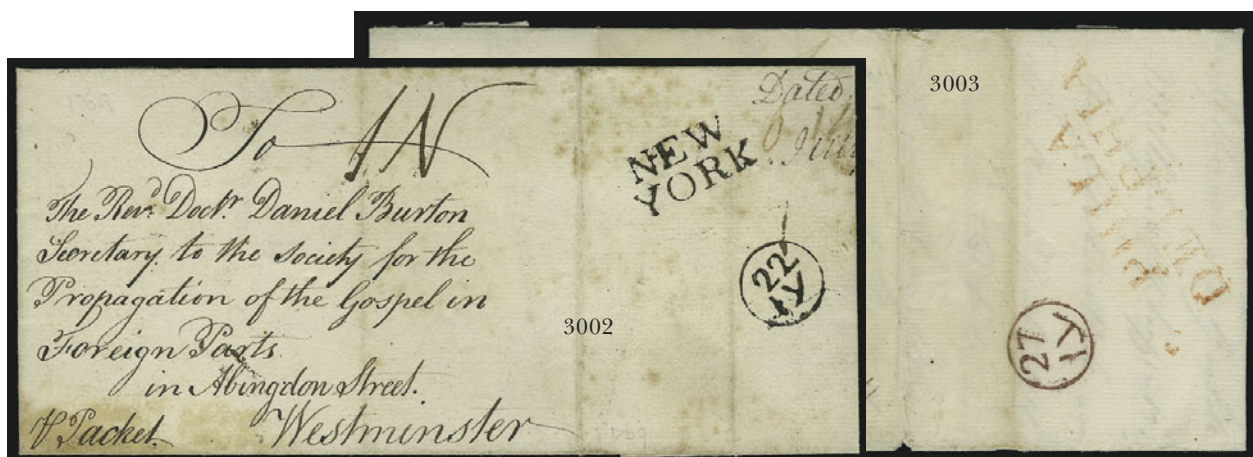 To 1N
The Revd. Doctr. Daniel Burton
Secretary to the Society for the
Propagation of the Gospel in
Foreign Parts
in Abingdon Street.
Packet. Westminster
Dated
July
NEW
YORK
22
IY
3002
3003
PHILA
DELPHIA
27
IY